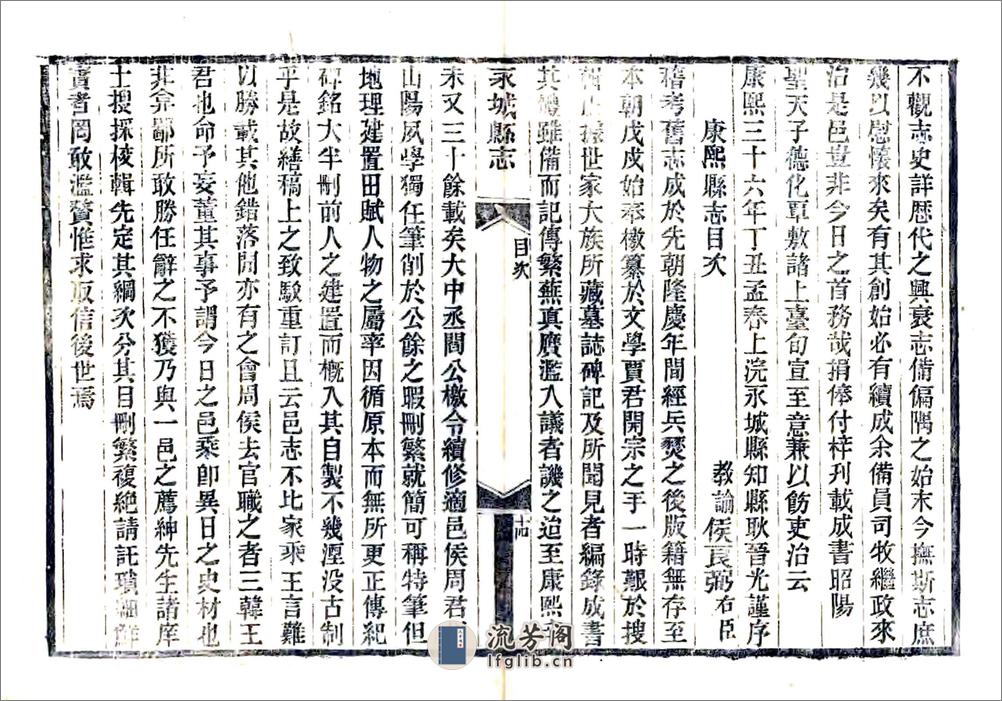 不觀志史詳歷代之興衰志備偏隅之始末今撫斯志庶
幾以慰懷來矣有其創始必有續成余備員司牧繼政來
治是邑豈非今日之首務哉捐俸付梓列載成書昭陽
聖天子德化覃敷諸上臺旬宣至意兼以飭吏治云
康熙三十六年丁丑孟春上浣永城縣知縣耿晉光謹序
康熙縣志目次
教諭侯良弼右臣
稽考舊志成於先朝隆慶年間經兵燹之後版籍無存至
本朝戊戌始奉檄纂於文學賈君開宗之手一時艱於搜
世家大族所藏墓誌碑記及所聞見者編錄成書
其體雖備而記傳繁蕪真贗濫入議者譏之迨至康熙
永城縣志
目次
十四
未又三十餘載矣大中丞閻公檄令續修適邑侯周君
山陽夙學獨任筆削於公餘之暇刪繁就簡可稱特筆但
地理建置田賦人物之屬率因循原本而無所更正傳紀
碑銘大半刪前人之建置而概入其自製不幾湮没古制
乎是故繕稿上之致駁重訂且云邑志不比家乘王言難
以勝載其他錯落間亦有之會周侯去官職之者三韓王
君也命予妄董其事予謂今日之邑乘即異日之史材也
非弇鄙所敢勝任辭之不獲乃與一邑之薦紳先生諸庠
士搜採校輯先定其綱次分其目刪繁複絶請託瑣
責者罔敢濫贅惟求取信後世焉
流芳阁
lfglib.cn